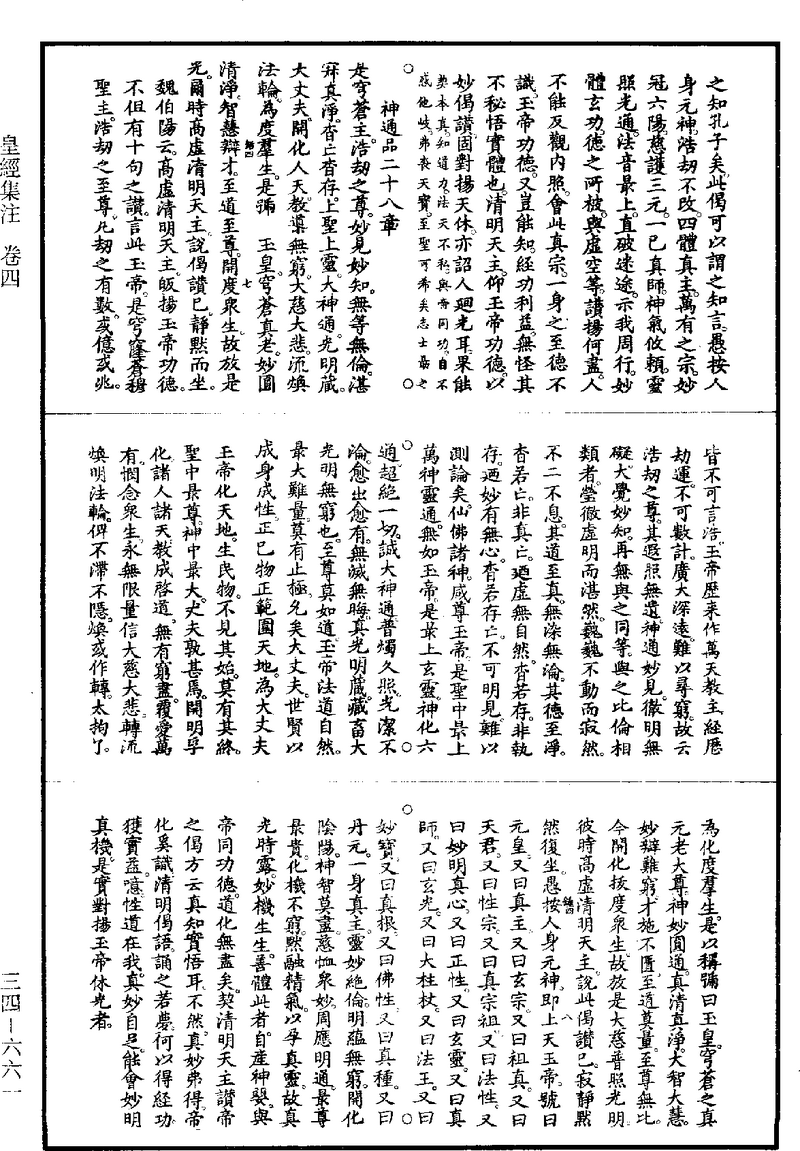 之知孔子矣。此偈可以謂之知言。愚按人
身元神。浩劫不改。四體真主。萬有之宗。妙
冠六陽。慈護三元。一已真師。神氣攸賴。靈
照光通。法音最上。直破迷途。示我周行。妙
體玄功。德之所被。與虛空等。讚揚何盡。人
不能反觀內照。會此真宗。一身之至德不
識。玉帝功德。又豈能知。經功利益。無怪其
不秘悟實體也。清明天主。仰玉帝功德。以
妙偈讚。固對揚天休。亦詔人迴光耳。果能
契本真。知道力。法天不私。與帝同功。自不
惑他岐。弗喪天寶。至聖可希矣。志士勗之
神通品二十八章
是穹蒼主。浩劫之尊。妙見妙知。無等無倫。湛
寂真淨。杳亡杳存。上聖上靈。大神通光明藏。
大丈夫。開化人天教導無窮。大慈大悲。流煥
法輪。為度群生。是號 玉皇穹蒼真老。妙圓
清淨。智慧辯才。至道至尊。開度眾生。故放是
光。爾時高虛清明天主。說偈讚已。靜默而坐。
魏伯陽云。高虛清明天主。皈揚玉帝功德。
不但有十句之讚。言此玉帝。是穹窿蒼穆
聖主。浩劫之至尊。凡劫之有數。或億或兆。
皆不可言浩。玉帝歷來作萬天教主。經歷
劫運。不可數計。廣大深遠。難以尋窮。故云
浩劫之尊。其遐照無遺。神通妙見。徹明無
礙。大覺妙知。再無與之同等。與之比倫相
類者。瑩徹虛明而湛然。巍巍不動而寂然。
不二不息。其道至真。無染無淪。其德至淨。
杳若亡。非真亡。廼虛無自然。杳若存。非執
存。廼妙有無心。杳若存亡。不可明見。難以
測論矣。仙佛諸神。咸尊玉帝。是聖中最上
萬神靈通。無如玉帝。是最上玄靈。神化六
通。超絕一切。誠大神通。普燭久照。光潔不
淪。愈出愈有。無滅無晦。真光明藏。藏畜大
光明無窮也。至尊莫如道。玉帝法道自然。
最大難量。莫有止極。允矣大丈夫。世賢以
成身成性。正已物正。範圍天地。為大丈夫
玉帝化天地。生民物。不見其始。莫有其終。
聖中最尊。神中最大。丈夫孰甚焉。開明孚
化諸人諸天。教成啓道。無有窮盡。覆愛萬
有。憫念眾生。永無限量。信大慈大悲。轉流
煥明法輪。俾不滯不隱。煥或作轉。太拘了。
為化度羣生。是以稱號曰玉皇。穹蒼之真
元老大尊。神妙圓通。真清真淨。大智大慧
妙辯難窮。才施不匱。至道莫量。至尊無比。
今開化拔度眾生。故放是大慈普照光明。
彼時高虛清明天主。說此偈讚已。寂靜默
然復坐。愚按人身元神。即上天玉帝。號曰
元皇。又曰真主。又曰玄宗。又曰祖真。又曰
天君。又曰性宗。又曰真宗祖。又曰法性。又
曰妙明真心。又曰正性。又曰玄靈。又曰真
師。又曰玄光。又曰大柱杖。又曰法王。又曰
妙寶。又曰真根。又曰佛性。又曰真種。又曰
丹元。一身真主。靈妙絕倫。明蘊無窮。開化
陰陽。神智莫盡。慈恤衆妙。周應明通。最尊
最貴。化機不窮。默融精氣。以孕真靈。故真
光時露。妙機生生。善體此者。自產神嬰。與
帝同功德。道化無盡矣。契清明天主讚帝
之偈。方云真知實悟耳。不然。真妙弗得。帝
化奚識。清明偈語。誦之若夢。何以得經功
獲實益。噫。性道在我。真妙自足。能會妙明
真機。是實對揚玉帝休光者。
皇經集注 卷四
三四—六六一